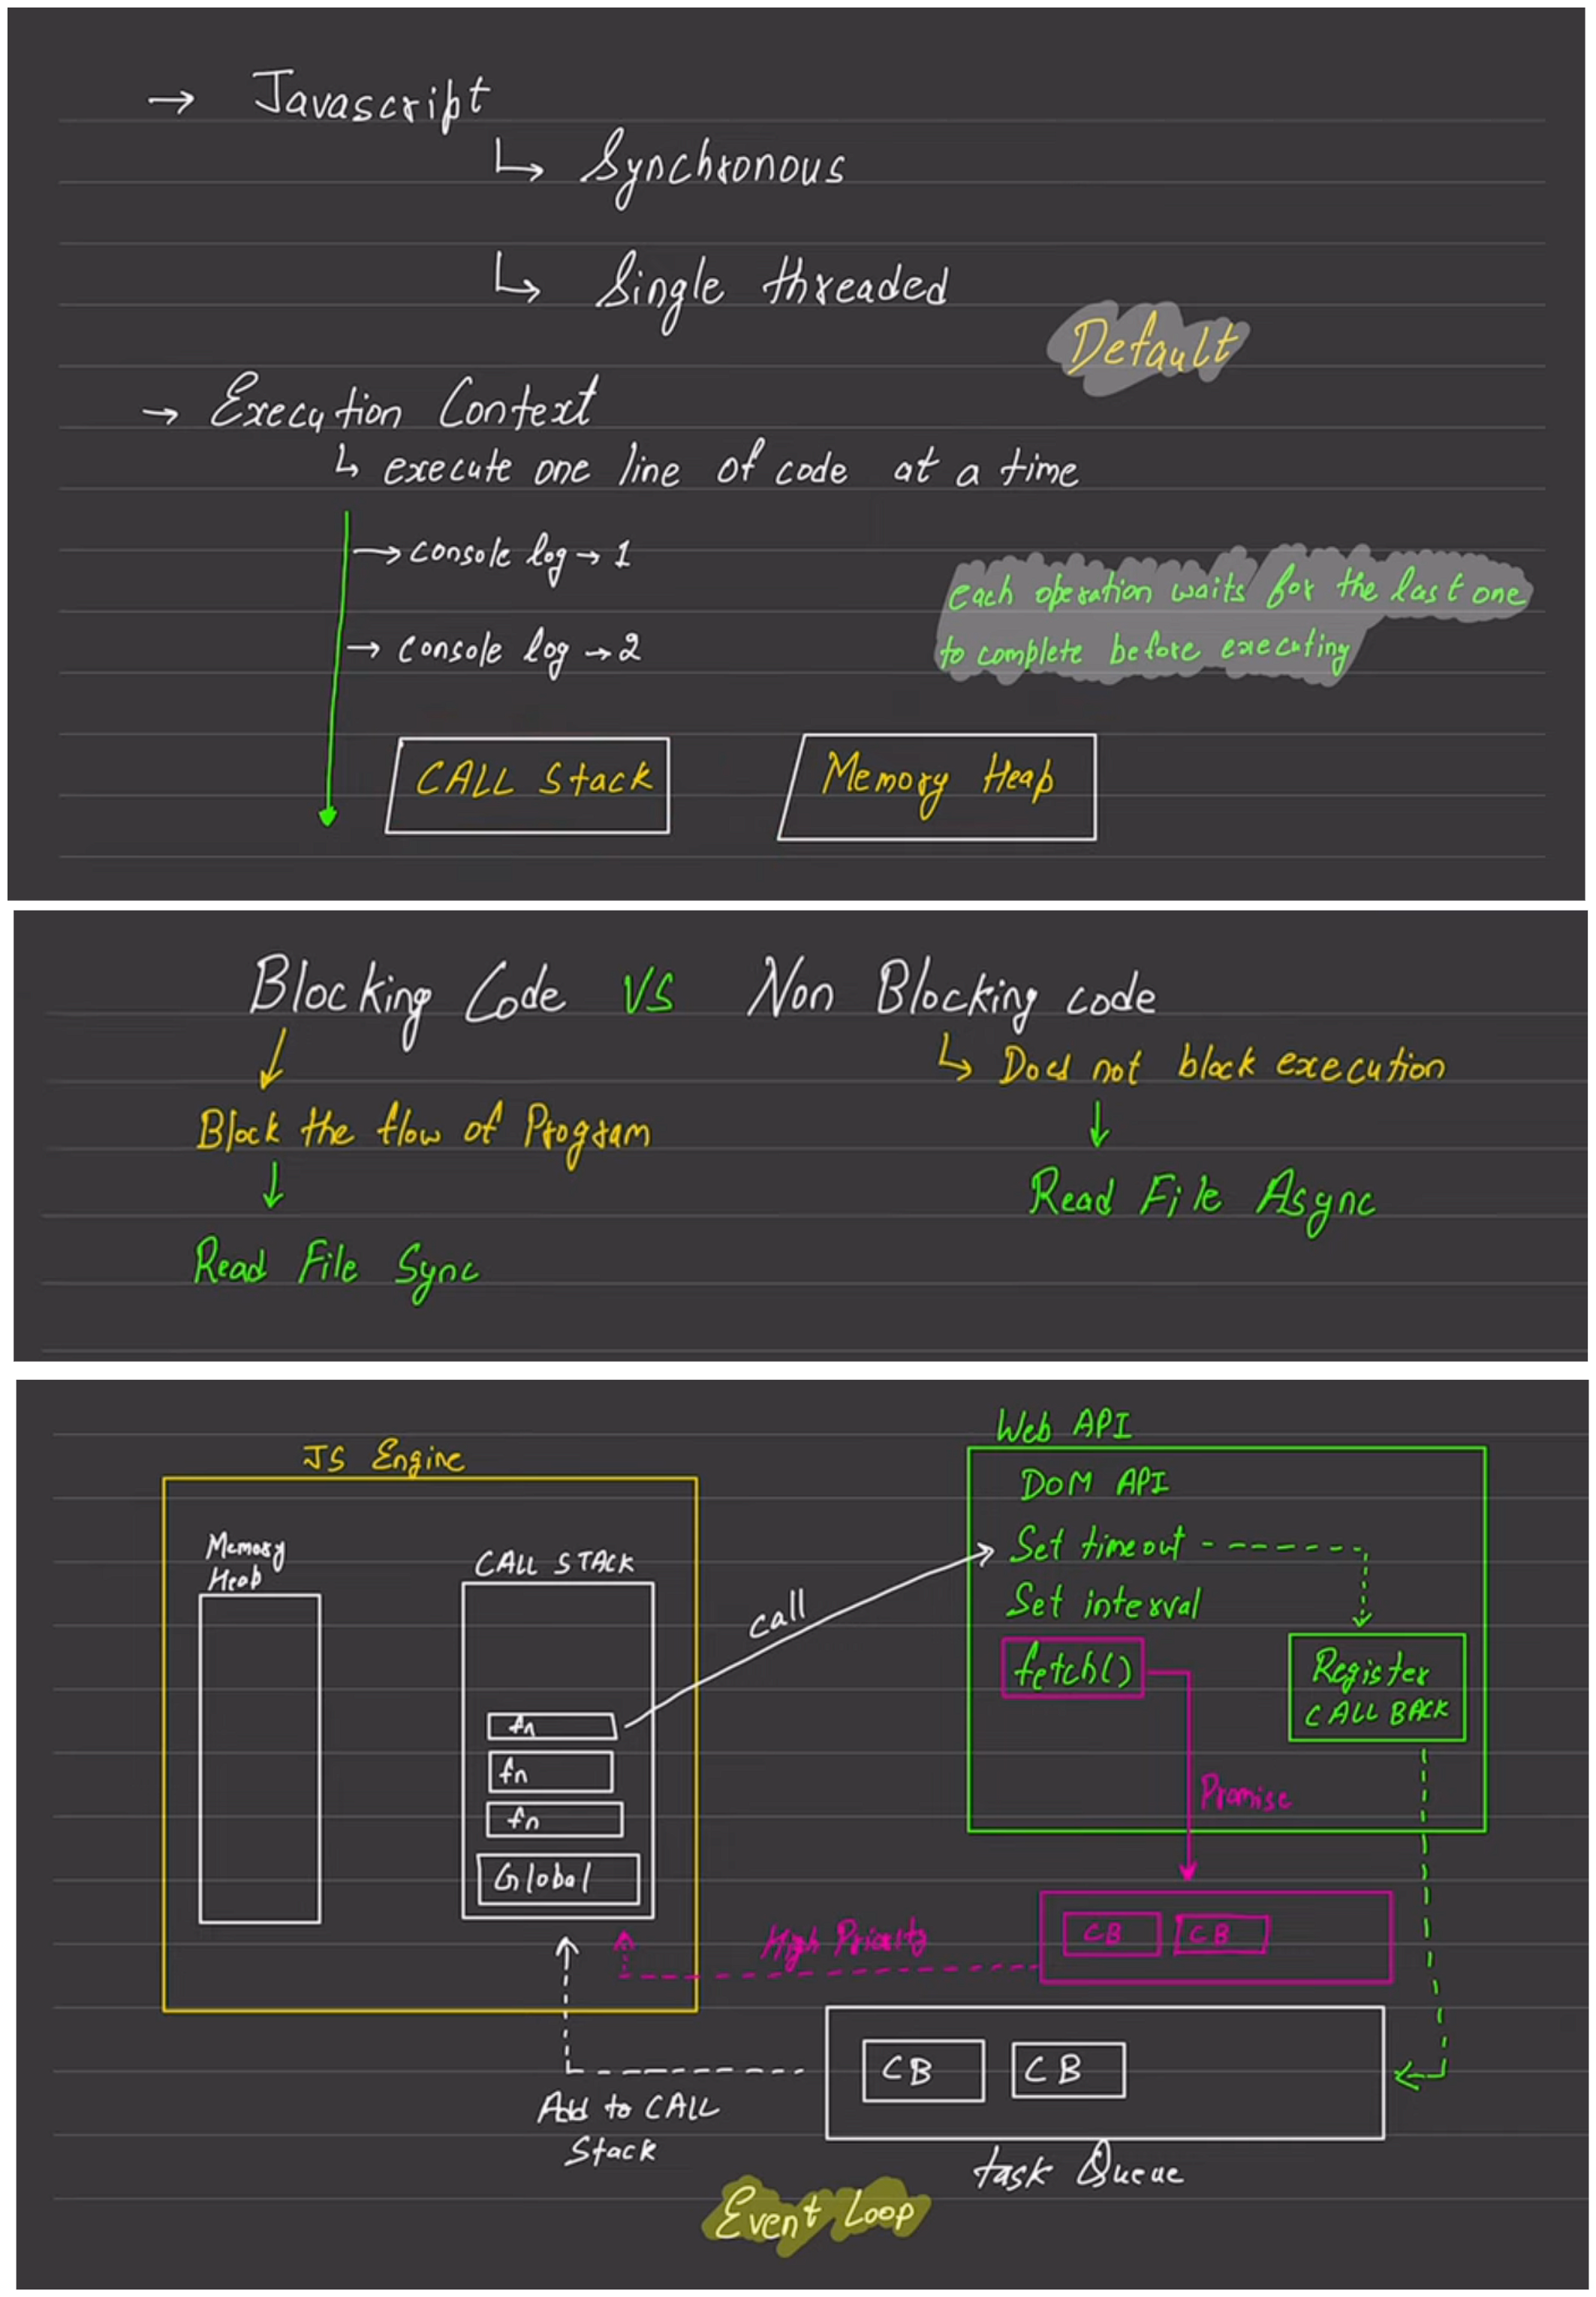 → Javascript
↳ Synchronous
↳ Single threaded
Default
→ Execution Context
↳ execute one line of code at a time
→ console log → 1
each operation waits for the last one
to complete before executing
→ console log → 2
CALL Stack
Memory Heap
Blocking Code VS Non Blocking code
↳ Does not block execution
Block the flow of Program
Read File Async
Read File Sync
Web API
JS Engine
DOM API
Memory
Heap
CALL STACK
Set timeout
Set interval
call
fetch()
Register
CALL BACK
fn
fn
fn
Promise
Global
High Priority
CB CB
CB CB
Add to CALL
Stack
task Queue
Event Loop